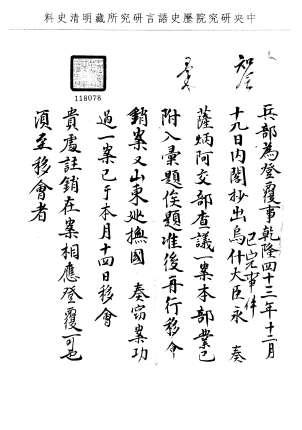 中央研究院歷史語言研究所藏明清史料
118078
兵部為登覆事乾隆四十三年十二月
已完事件
十九日內閣抄出烏什大臣永 奏
薩炳阿交部查議一案本部業已
附入彙題俟題准後再行移會
銷案又山東巡撫國 奏竊案功
過一案已于本月十四日移會
貴處註銷在案相應登覆可也
須至移會者